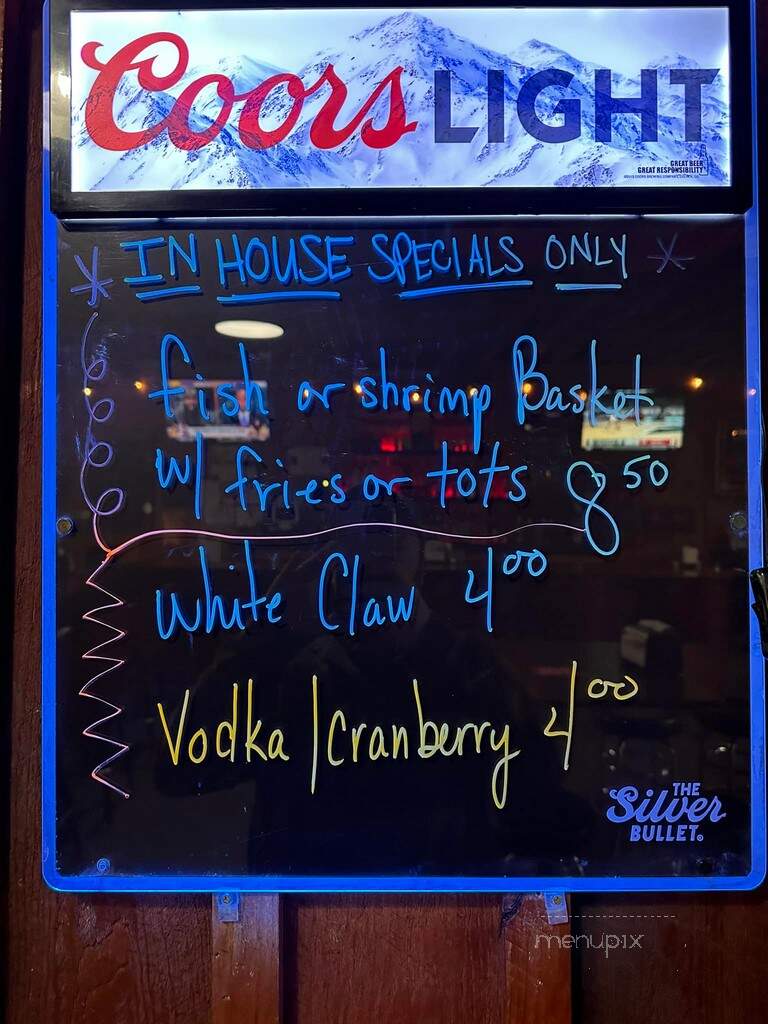 Coors LIGHT
GREAT BEER
GREAT RESPONSIBILITY
* IN HOUSE SPECIALS ONLY *
fish or shrimp Basket
w/ fries or tots 8 50
White Claw 4 00
Vodka / Cranberry 4 00
THE
Silver
BULLET.
menupix